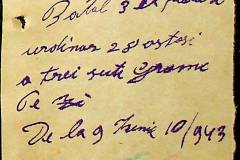 Batal 3
urdinar 28 ostesi
a trei sute grame
Pe zi
De la 9 Iunie 10/943